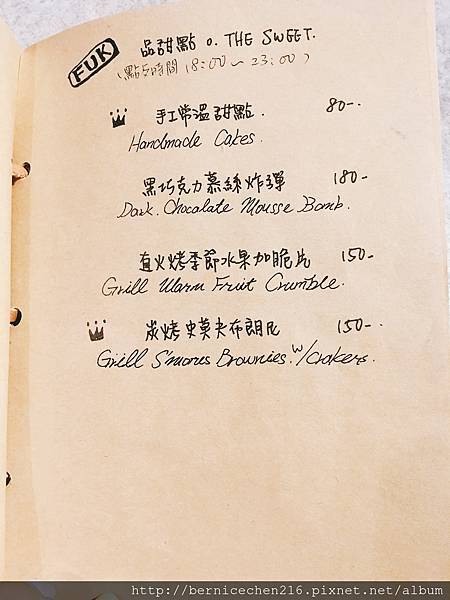 FUK 品甜點 o. THE SWEET.
(點餐時間 18:00~23:00)
手工常溫甜點. 80-
Handmade Cakes.
黑巧克力慕絲炸彈 180-
Dark. Chocolate Mousse Bomb.
直火烤季節水果加脆片 150-
Grill Warm Fruit Crumble.
炭烤史莫夫布朗尼 150-.
Grill S'mores Brownies. w/crakers.
http://bernicechen216.pixnet.net/album